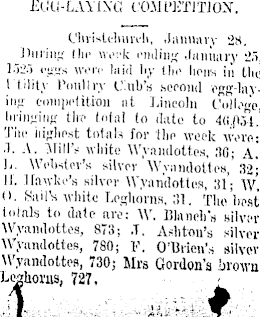 EGG-LAYING COMPETITION.
Christchurch, January 28.
During the week ending January 25,
1525 eggs were laid by the hens in the
Utility Poultry Cub's second egg-lay-
ing competition at Lincoln College,
bringing the total to date to 46,054.
The highest totals for the week were:
J. A. Mill's white Wyandottes, 36; A.
L. Webster's silver Wyandottes, 32;
H. Hawke's silver Wyandottes, 31; W.
O. Sail's white Leghorns, 31. The best
totals to date are: W. Blanch's silver
Wyandottes, 873; J. Ashton's silver
Wyandottes, 780; F. O'Brien's silver
Wyandottes, 730; Mrs Gordon's brown
Leghorns, 727.